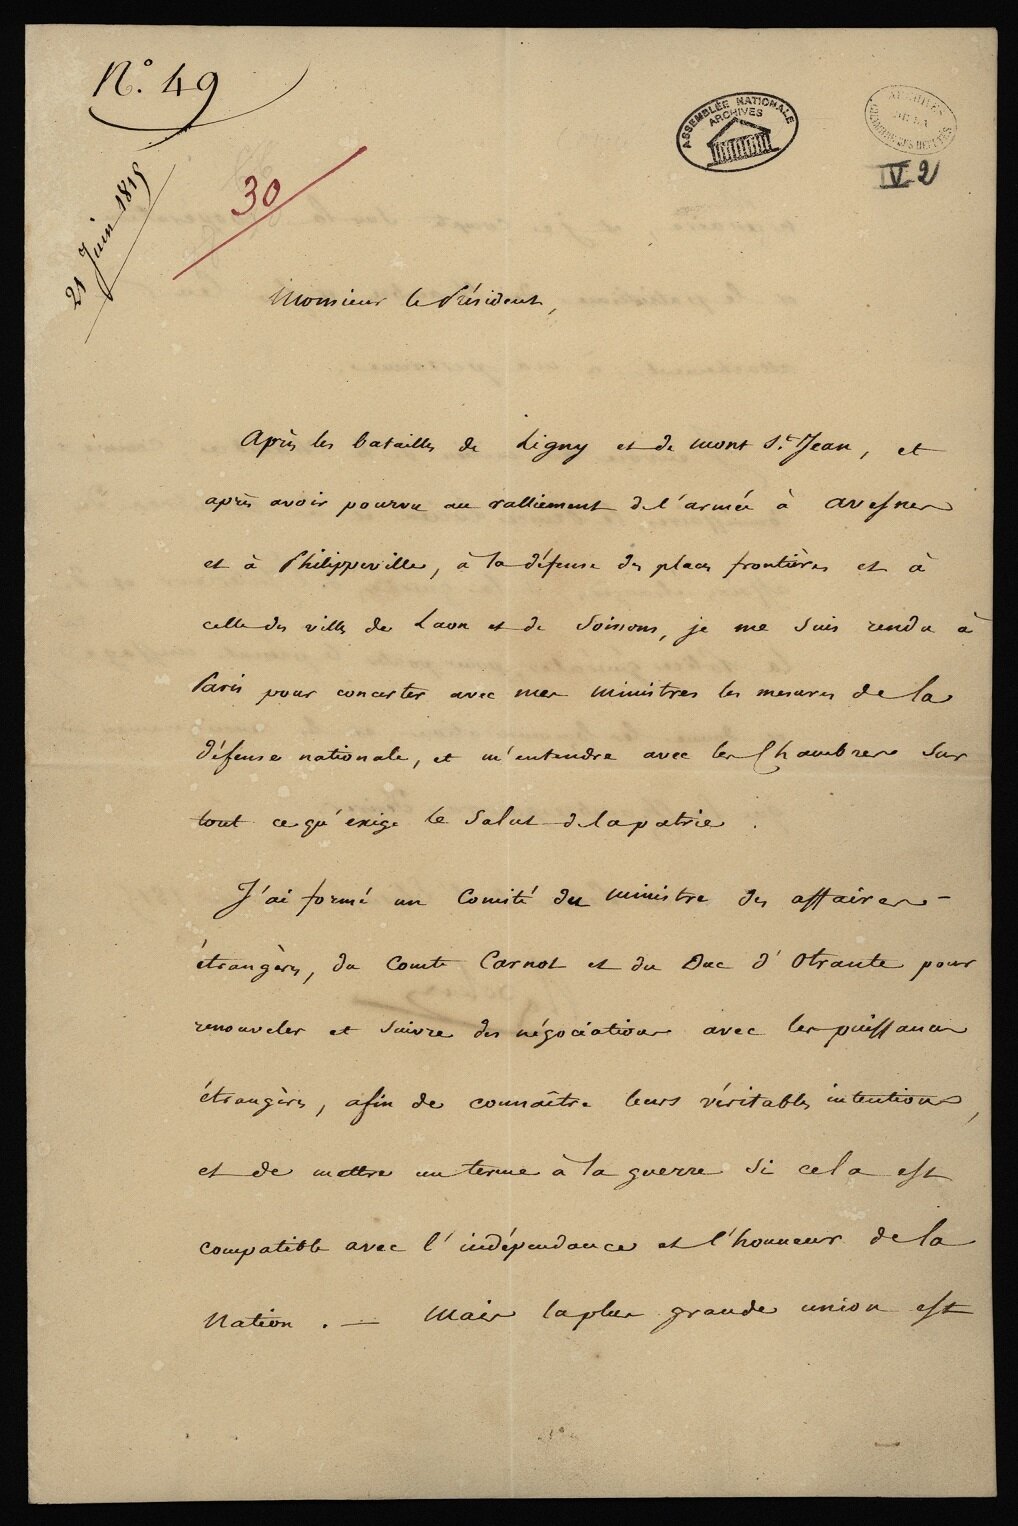 N.° 49
21 Juin 1815
30
ASSEMBLÉE NATIONALE
ARCHIVES
IV 2
Monsieur le Président,
Après les batailles de Ligny et de Mont St. Jean, et
après avoir pourvu au ralliement de l'armée à Avesnes
et à Philippeville, à la défense des places frontières et à
celle des villes de Laon et de Soissons, je me suis rendu à
Paris pour concerter avec mes ministres les mesures de la
défense nationale, et m'entendre avec les Chambres sur
tout ce qu'exige le salut de la patrie.
J'ai formé un Comité du ministre des affaires
étrangères, du Comte Carnot et du Duc d'Otrante pour
renouveler et suivre des négociations avec les puissances
étrangères, afin de connaître leurs véritables intentions,
et de mettre un terme à la guerre si cela est
compatible avec l'indépendance et l'honneur de la
Nation. — Mais la plus grande union est